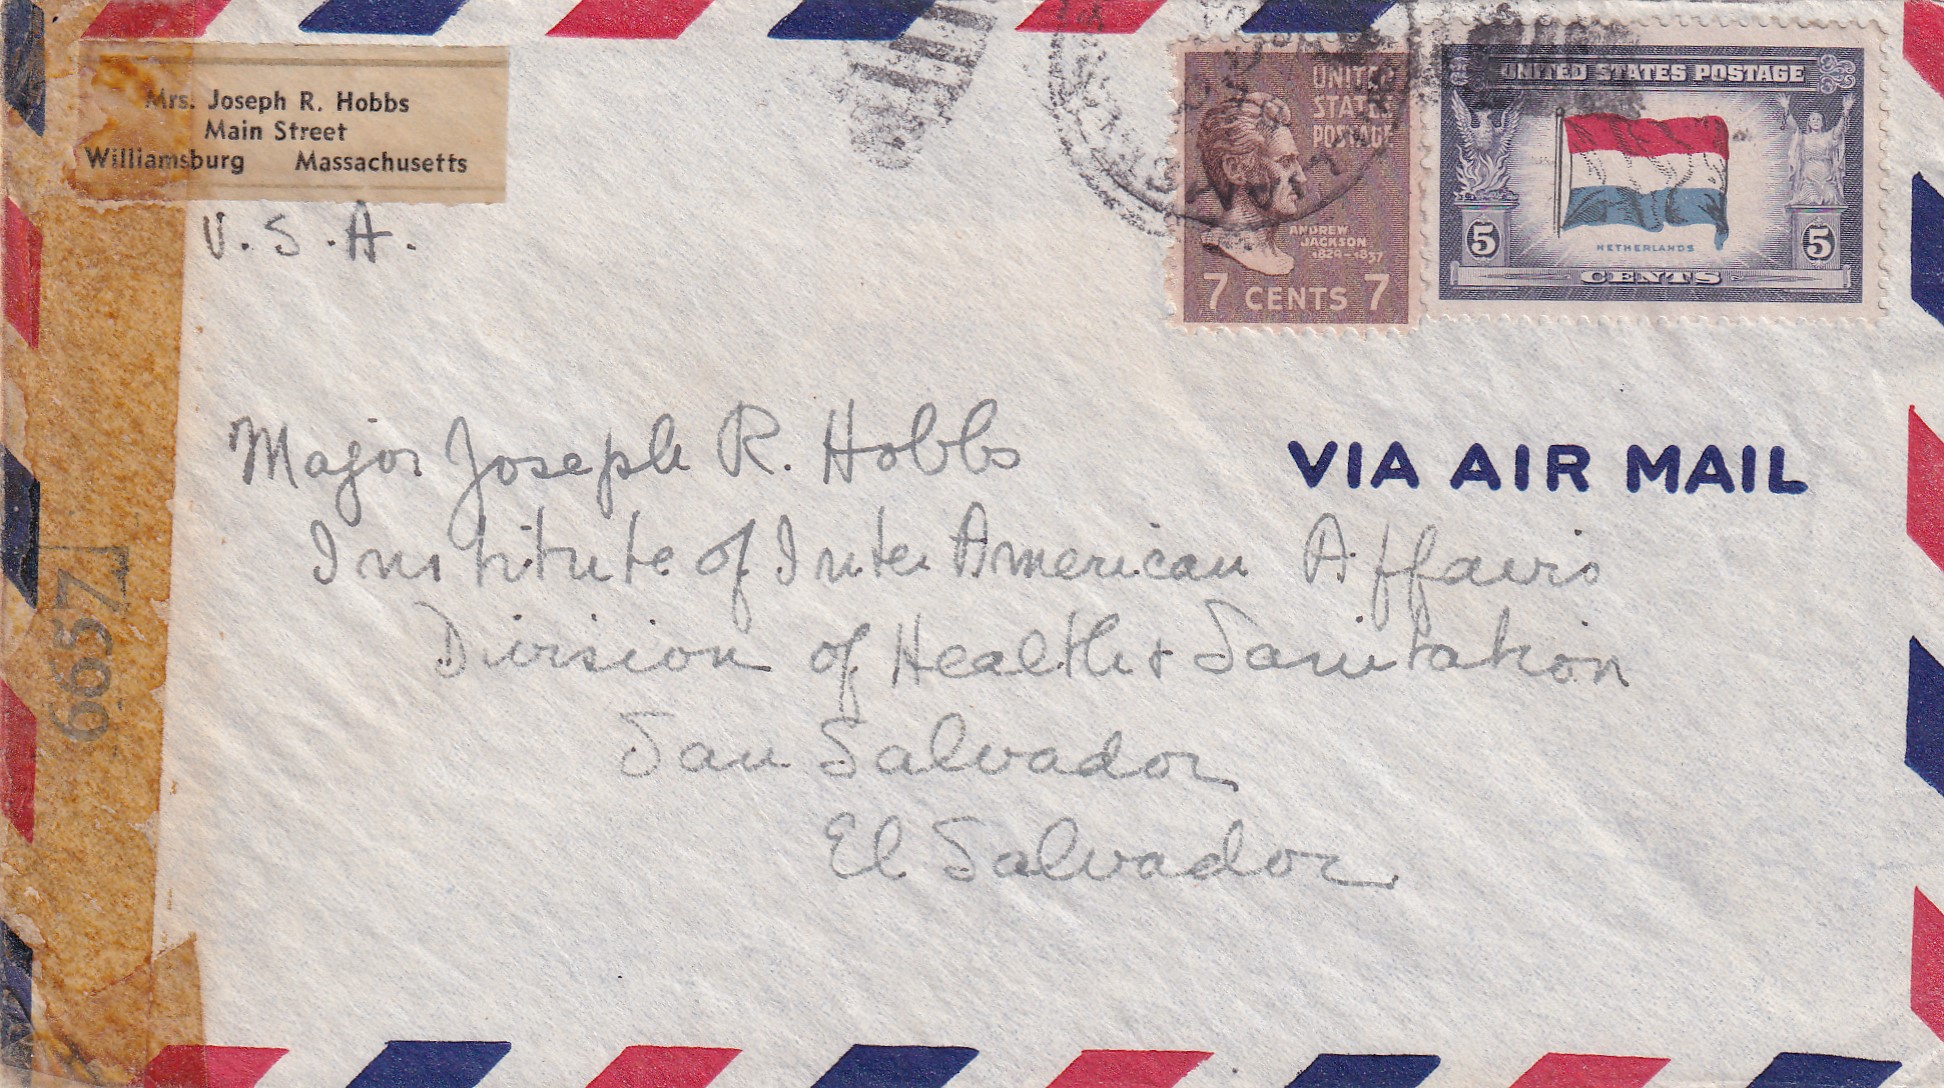 Mrs. Joseph R. Hobbs
Main Street
Williamsburg Massachusetts
U.S.A.
UNITED
STATES
POSTAGE
ANDREW
JACKSON
1829-1837
7 CENTS 7
UNITED STATES POSTAGE
NETHERLANDS
5 5
CENTS
VIA AIR MAIL
Major Joseph R. Hobbs
Institute of Inter American Affairs
Division of Health & Sanitation
San Salvador
El Salvador
6657